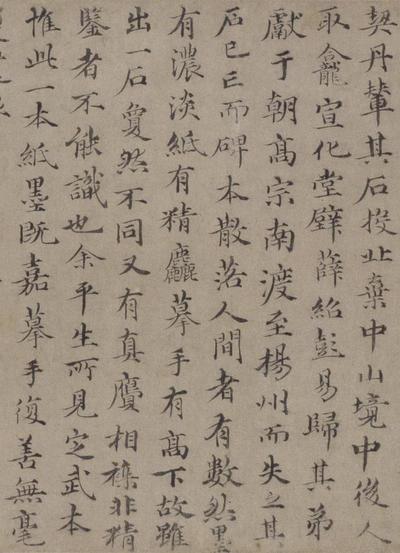 契丹輦其石投北棄中山境中後人
取龕宣化堂壁薛紹彭易歸其弟
獻于朝高宗南渡至楊州而失之其
石已亡而碑本散落人間者有數然墨
有濃淡紙有精麤摹手有高下故雖
出一石夐然不同又有真贗相雜非精
鑒者不能識也余平生所見定武本
惟此一本紙墨既嘉摹手復善無毫